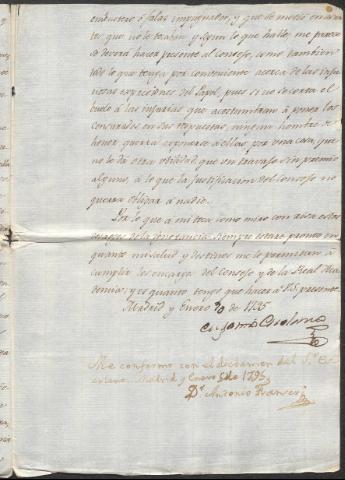 embustero ó falso impugnador, y que se metió en asun-
tos que no le tocan: y segun lo que hallo, me parece
se deverá hacer presente al Consejo, como tambien
de lo que tenga por conveniente acerca de las inju-
riosas expresiones del Papel, pues si no se corta el
buelo á las injurias que acostumbran á poner los
Censurados en sus respuestas, ningun hombre de
honor querrá exponerse á ellas por una cosa, que
no le dá otra utilidad que un trabajo sin premio
alguno, á lo que la justificacion del Consejo no
querrá obligar á nadie.
Por lo que á mi toca, como miro con
de la ignorancia siempre estaré pronto en
quanto mi salud y destinos me lo permitan á
cumplir los encargos del Consejo y de la Real Aca-
demia; y es quanto tengo que hacer á VS. presente.
Madrid y Enero 30 de 1795
Me conformo con el dictamen del Sr.
Madrid y Enero de 1795
Dr. Antonio Franseri